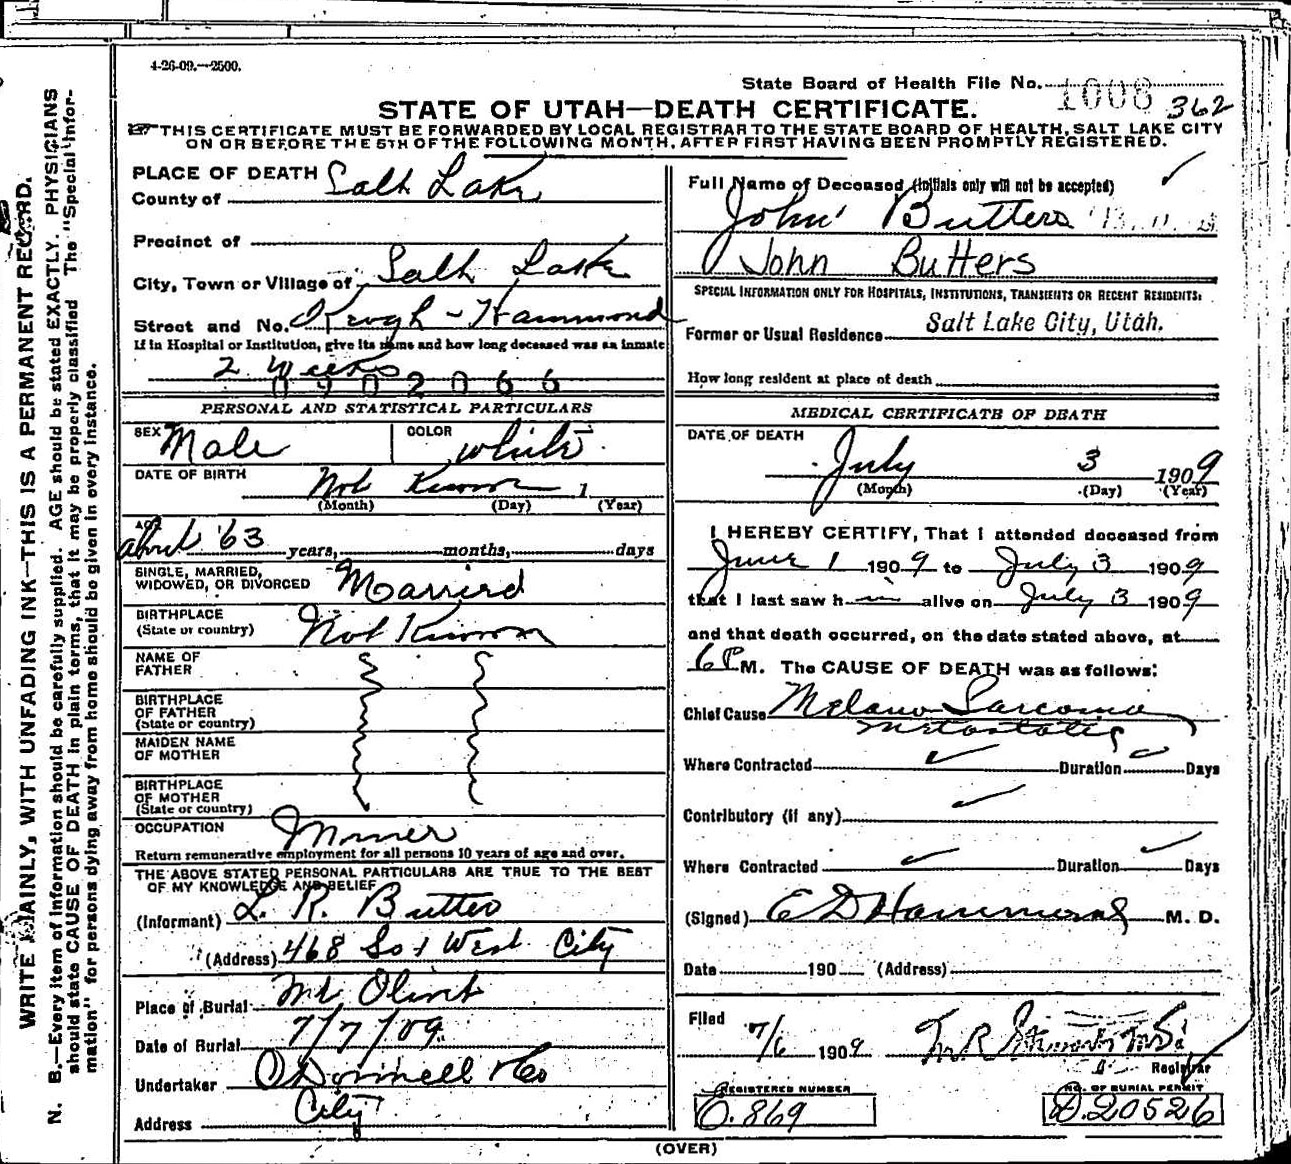 4-26-09.—2500.
State Board of Health File No. 1008 362
STATE OF UTAH—DEATH CERTIFICATE.
THIS CERTIFICATE MUST BE FORWARDED BY LOCAL REGISTRAR TO THE STATE BOARD OF HEALTH, SALT LAKE CITY
ON OR BEFORE THE 5TH OF THE FOLLOWING MONTH, AFTER FIRST HAVING BEEN PROMPTLY REGISTERED.
WRITE PLAINLY, WITH UNFADING INK—THIS IS A PERMANENT RECORD.
N. B.—Every item of information should be carefully supplied. AGE should be stated EXACTLY. PHYSICIANS
should state CAUSE OF DEATH in plain terms, that it may be properly classified. The "Special Infor-
mation" for persons dying away from home should be given in every instance.
PLACE OF DEATH
County of Salt Lake
Precinct of
City, Town or Village of Salt Lake
Street and No. Keogh-Hammond
If in Hospital or Institution, give its name and how long deceased was an inmate
2 Weeks
0902066
PERSONAL AND STATISTICAL PARTICULARS
SEX Male COLOR white
DATE OF BIRTH Not Known 1
(Month) (Day) (Year)
AGE about 63 years, months, days
SINGLE, MARRIED,
WIDOWED, OR DIVORCED Married
BIRTHPLACE
(State or country) Not Known
NAME OF
FATHER
BIRTHPLACE
OF FATHER
(State or country)
MAIDEN NAME
OF MOTHER
BIRTHPLACE
OF MOTHER
(State or country)
OCCUPATION Miner
Return remunerative employment for all persons 10 years of age and over.
THE ABOVE STATED PERSONAL PARTICULARS ARE TRUE TO THE BEST
OF MY KNOWLEDGE AND BELIEF
(Informant) L. R. Butters
(Address) 468 So 1 West City
Place of Burial Mt Olivet
Date of Burial 7/7/09
Undertaker O'Donnell & Co
Address City
Full Name of Deceased (Initials only will not be accepted)
John Butters
John Butters
SPECIAL INFORMATION ONLY FOR HOSPITALS, INSTITUTIONS, TRANSIENTS OR RECENT RESIDENTS:
Former or Usual Residence Salt Lake City, Utah.
How long resident at place of death
MEDICAL CERTIFICATE OF DEATH
DATE OF DEATH
July 3 1909
(Month) (Day) (Year)
I HEREBY CERTIFY, That I attended deceased from
June 1 1909 to July 3 1909
that I last saw him alive on July 3 1909
and that death occurred, on the date stated above, at
6 P M. The CAUSE OF DEATH was as follows:
Chief Cause Melano Sarcoma
metastatic
Where Contracted Duration Days
Contributory (if any)
Where Contracted Duration Days
(Signed) E D Hammond M. D.
Date 190 (Address)
Filed
7/6 1909
Registrar
REGISTERED NUMBER
O.869
NO. OF BURIAL PERMIT
D.20526
(OVER)